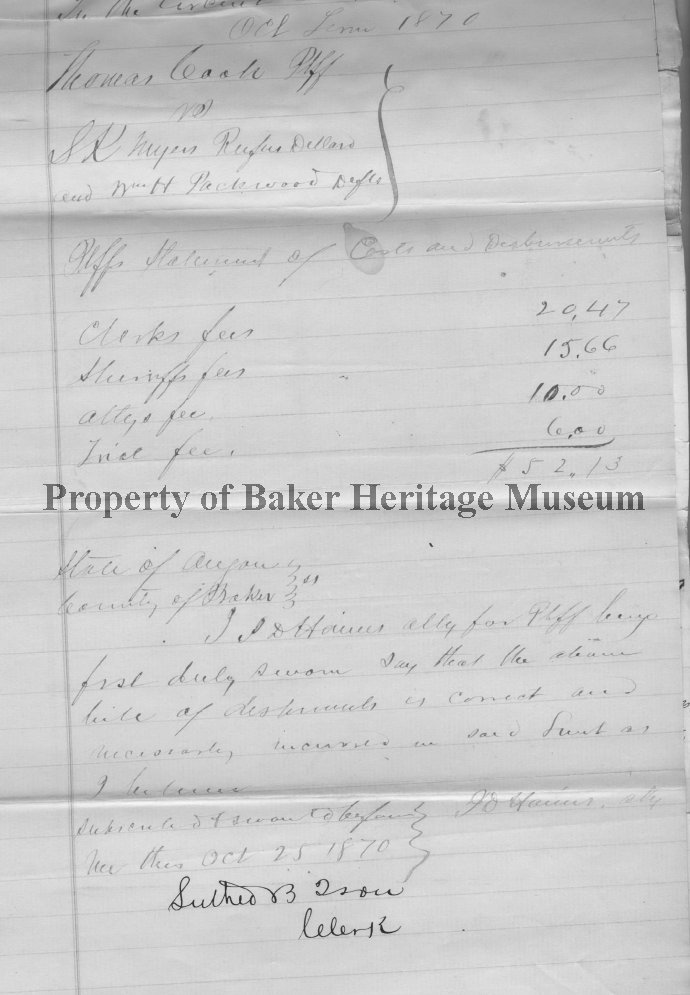 In the Circuit
Oct Term 1870
Thomas Cook Plff
vs
S K Myers Rufus Dillard
and Wm H Packwood Defts
Plffs Statement of Costs and Disbursements
Clerks fees 20,47
Sheriffs fees 15.66
Attys fee. 10.00
Trial fee. 6.00
$52.13
Property of Baker Heritage Museum
State of Oregon
County of Baker ss
I I D Haines atty for Plff being
first duly sworn say that the above
bill of is correct and
necessarily incurred in said Suit as
I believe
Subscribed & sworn to before I D Haines, atty
me this Oct 25 1870
B Ison
Clerk